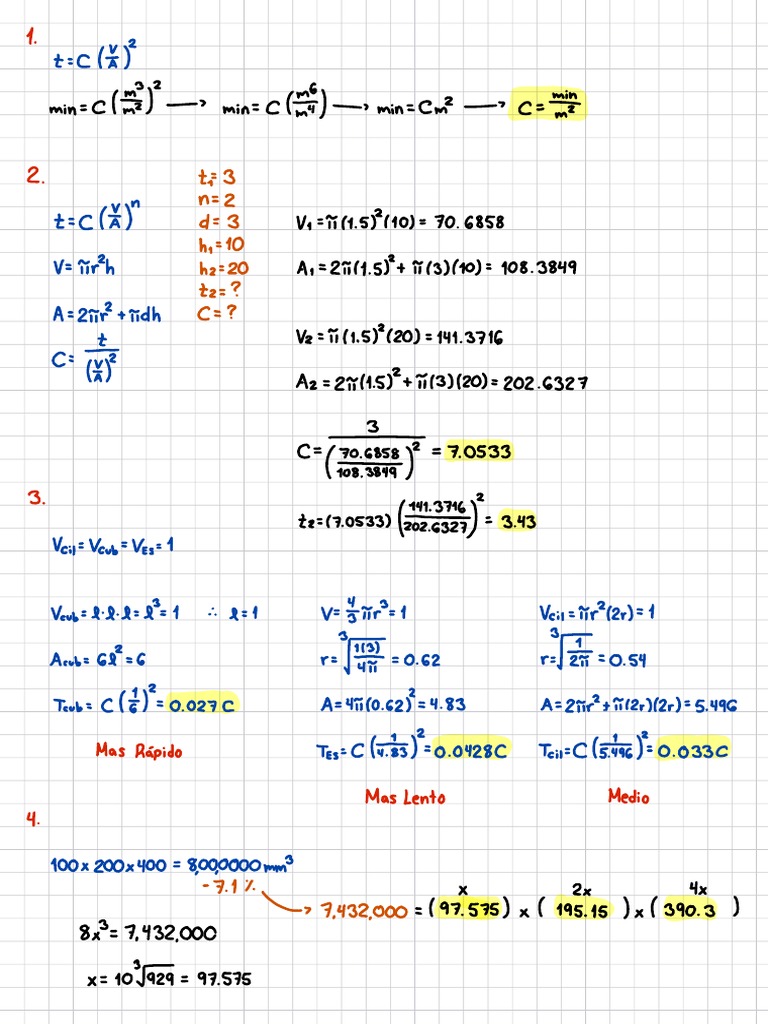 1.
t = C (V/A)^2
min = C (m^3/m^2)^2 → min = C (m^6/m^4) → min = Cm^2 → C = min/m^2
2.
t = C (V/A)^n
V = πr^2h
A = 2πr^2 + πdh
C = t/(V/A)^2
t1 = 3
n = 2
d = 3
h1 = 10
h2 = 20
t2 = ?
C = ?
V1 = π(1.5)^2(10) = 70.6858
A1 = 2π(1.5)^2 + π(3)(10) = 108.3849
V2 = π(1.5)^2(20) = 141.3716
A2 = 2π(1.5)^2 + π(3)(20) = 202.6327
C = 3/(70.6858/108.3849)^2 = 7.0533
t2 = (7.0533) (141.3716/202.6327)^2 = 3.43
3.
Vcil = Vcub = VEs = 1
Vcub = l·l·l = l^3 = 1 ∴ l = 1
Acub = 6l^2 = 6
Tcub = C (1/6)^2 = 0.027 C
Mas Rápido
V = 4/3 πr^3 = 1
r = ∛(1(3)/4π) = 0.62
A = 4π(0.62)^2 = 4.83
TEs = C (1/4.83)^2 = 0.0428C
Mas Lento
Vcil = πr^2(2r) = 1
r = ∛(1/2π) = 0.54
A = 2πr^2 + π(2r)(2r) = 5.496
Tcil = C (1/5.496)^2 = 0.033C
Medio
4.
100 x 200 x 400 = 8,00,0000 mm^3
-7.1 %
7,432,000 = (97.575) x (195.15) x (390.3)
x 2x 4x
8x^3 = 7,432,000
x = 10∛929 = 97.575